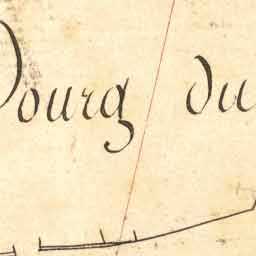 Bourg du